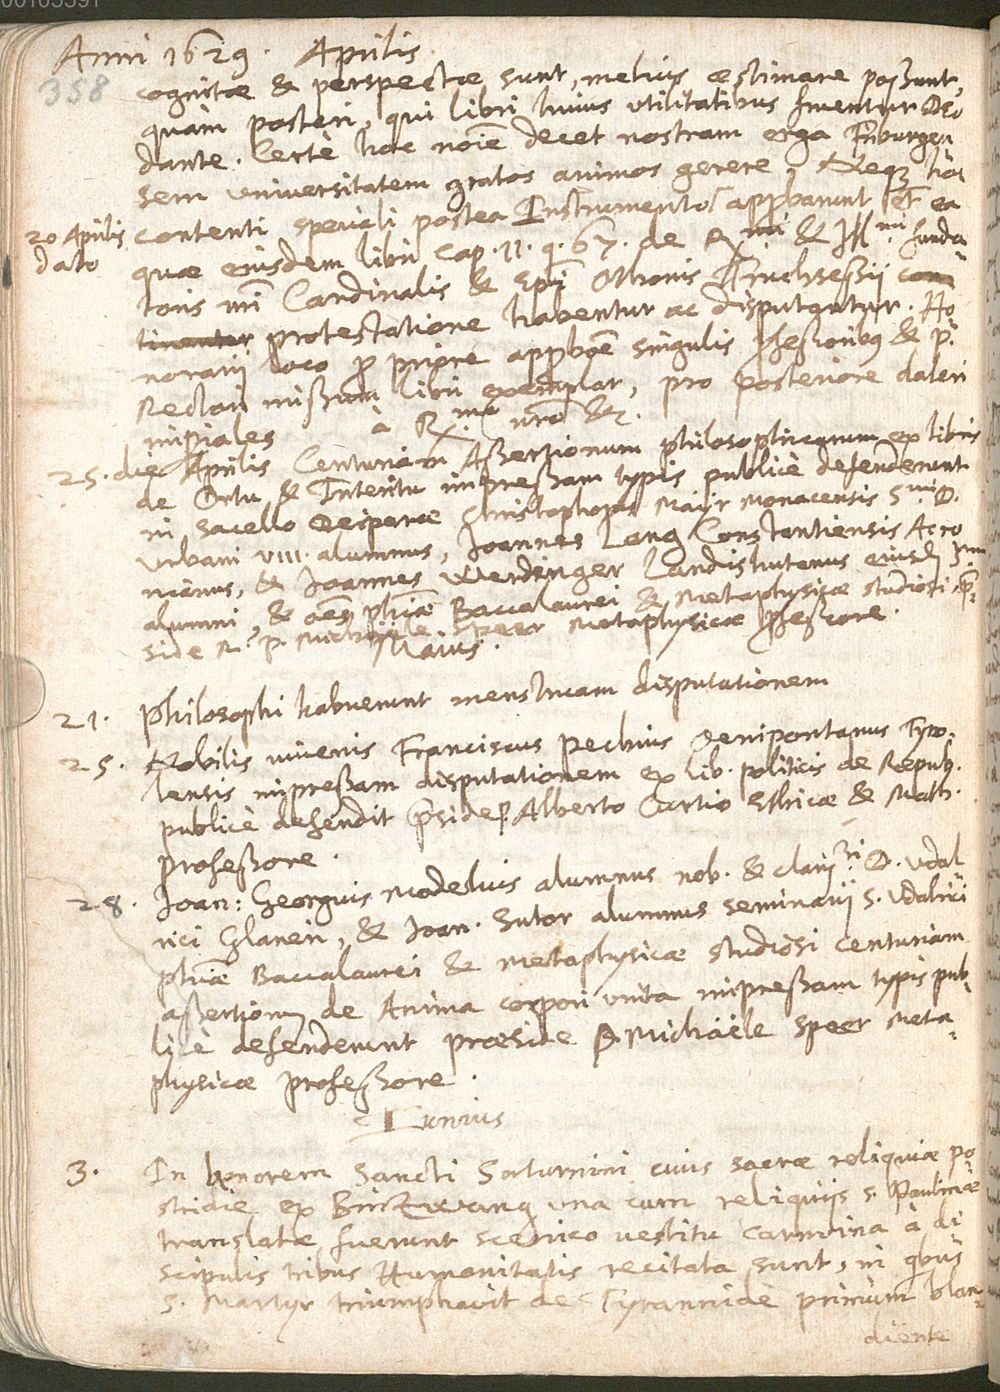 00105591
Anni 1629. Aprilis
358
cognitæ & perspectæ sunt, melius æstimare possunt,
quàm posteri, qui libri huius utilitatibus fruentur Deo
dante. Certè hoc noīe decet nostram erga Friburgen
sem universitatem gratos animos gerere, Neq3 hoc
contenti speciali postea Instrumento approbarunt et ea
20 Aprilis
dato
quæ eiusdem libri cap. 11. q. 67. de Rmi & Illmi funda
toris nri Cardinalis & Epi Othonis Truchsessii con
tinentur protestatione habentur ac disputantur. Ho
norarij loco p priore approbõe singulis professoribq & P.
Rectori missum libri exemplar, pro posteriore daleri
imperiales à Rmo nro &c.
25. die Aprilis Centuriam Assertionum philosophicarum ex libris
de Ortu & Interitu impressam typis publicè defenderunt
in sacello Vesperæ Christophorus Mair Monacensis Smi D.
Urbani VIII. alumnus, Joannes Lang Constantiensis Acro
nianus, & Joannes Werdinger Landishutanus eiusd Smi
alumni, & oēs phiæ Baccalaurei & Metaphysicæ studiosi præ
side R. P. Michaële Speer Metaphysicæ Professore.
Maius.
21. Philosophi habuerunt menstruam disputationem
25. Nobilis iuvenis Franciscus Pechius Oenipontanus Tyro-
lensis impressam disputationem ex lib. politicis de Repub.
publicè defendit præside P. Alberto Curtio Ethicæ & Math.
professore.
28. Joan: Georgius Modelius alumnus nob. & clarissmi D. Udal
rici Glaneri, & Joan. Sutor alumnus seminarij S. Udalrici
phiæ Baccalaurei & metaphysicæ studiosi centuriam
assertionum de Anima corpori unita impressam typis pub-
licè defenderunt præside P. Michaële Speer Meta-
physicæ professore.
Iunius
3. In honorem Sancti Saturnini cuius sacræ reliquiæ po
stridie ex Binzwang una cum reliquijs S. Paulinæ
translatæ fuerunt scenico vestitu carmina à di
scipulis tribus Humanitatis recitata sunt, in qbus
S. Martyr triumphavit de Tyrannide primum blan-
diente